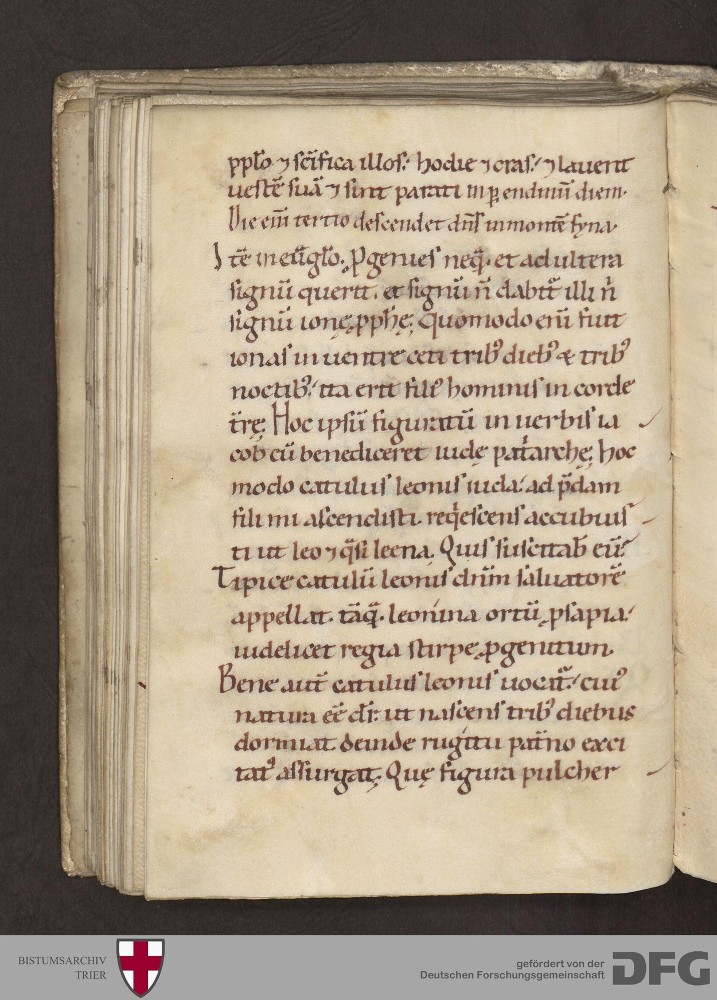 pp̄lo ⁊ sc̄ifica illos. hodie ⁊ cras. ⁊ lauent
uestē suā ⁊ sint parati in ꝑendinū diem.
Die eīm tertio descendet dn̄s in montē syna.
Itē in eūg̅lo. ꝓgenies neq̄. et adultera
signū querit. et signū n̄ dabit᷑ illi n̄
signū ionę ꝓph̄ę. quomodo enī fuit
ionas in uentre ceti tribꝰ diebꝰ & tribꝰ
noctibꝰ. ita erit filiꝰ hominis in corde
t̄rę. Hoc ipsū figuratū in uerbis ia
cob cū benediceret iudę pat̄archę. hoc
modo catulus leonis iuda. ad p̄dam
fili mi ascendisti. reqͥescens accubuis
ti ut leo ⁊ qͣsi leena. Quis suscitab̄ eū.
Tipice catulū leonis dn̄m saluatorē
appellat. tāq̄. leonina ortū ꝓsapia.
uidelicet regia stirpe ꝓgenitum.
Bene aut̄ catulus leonis uocat᷑. cuiꝰ
natura eē dr̄. ut nascens tribꝰ diebus
dormiat. deinde rugitu pat̄no exci
tatꝰ assurgat. Quę figura pulcher
BISTUMSARCHIV
TRIER
gefördert von der
Deutschen Forschungsgemeinschaft
DFG